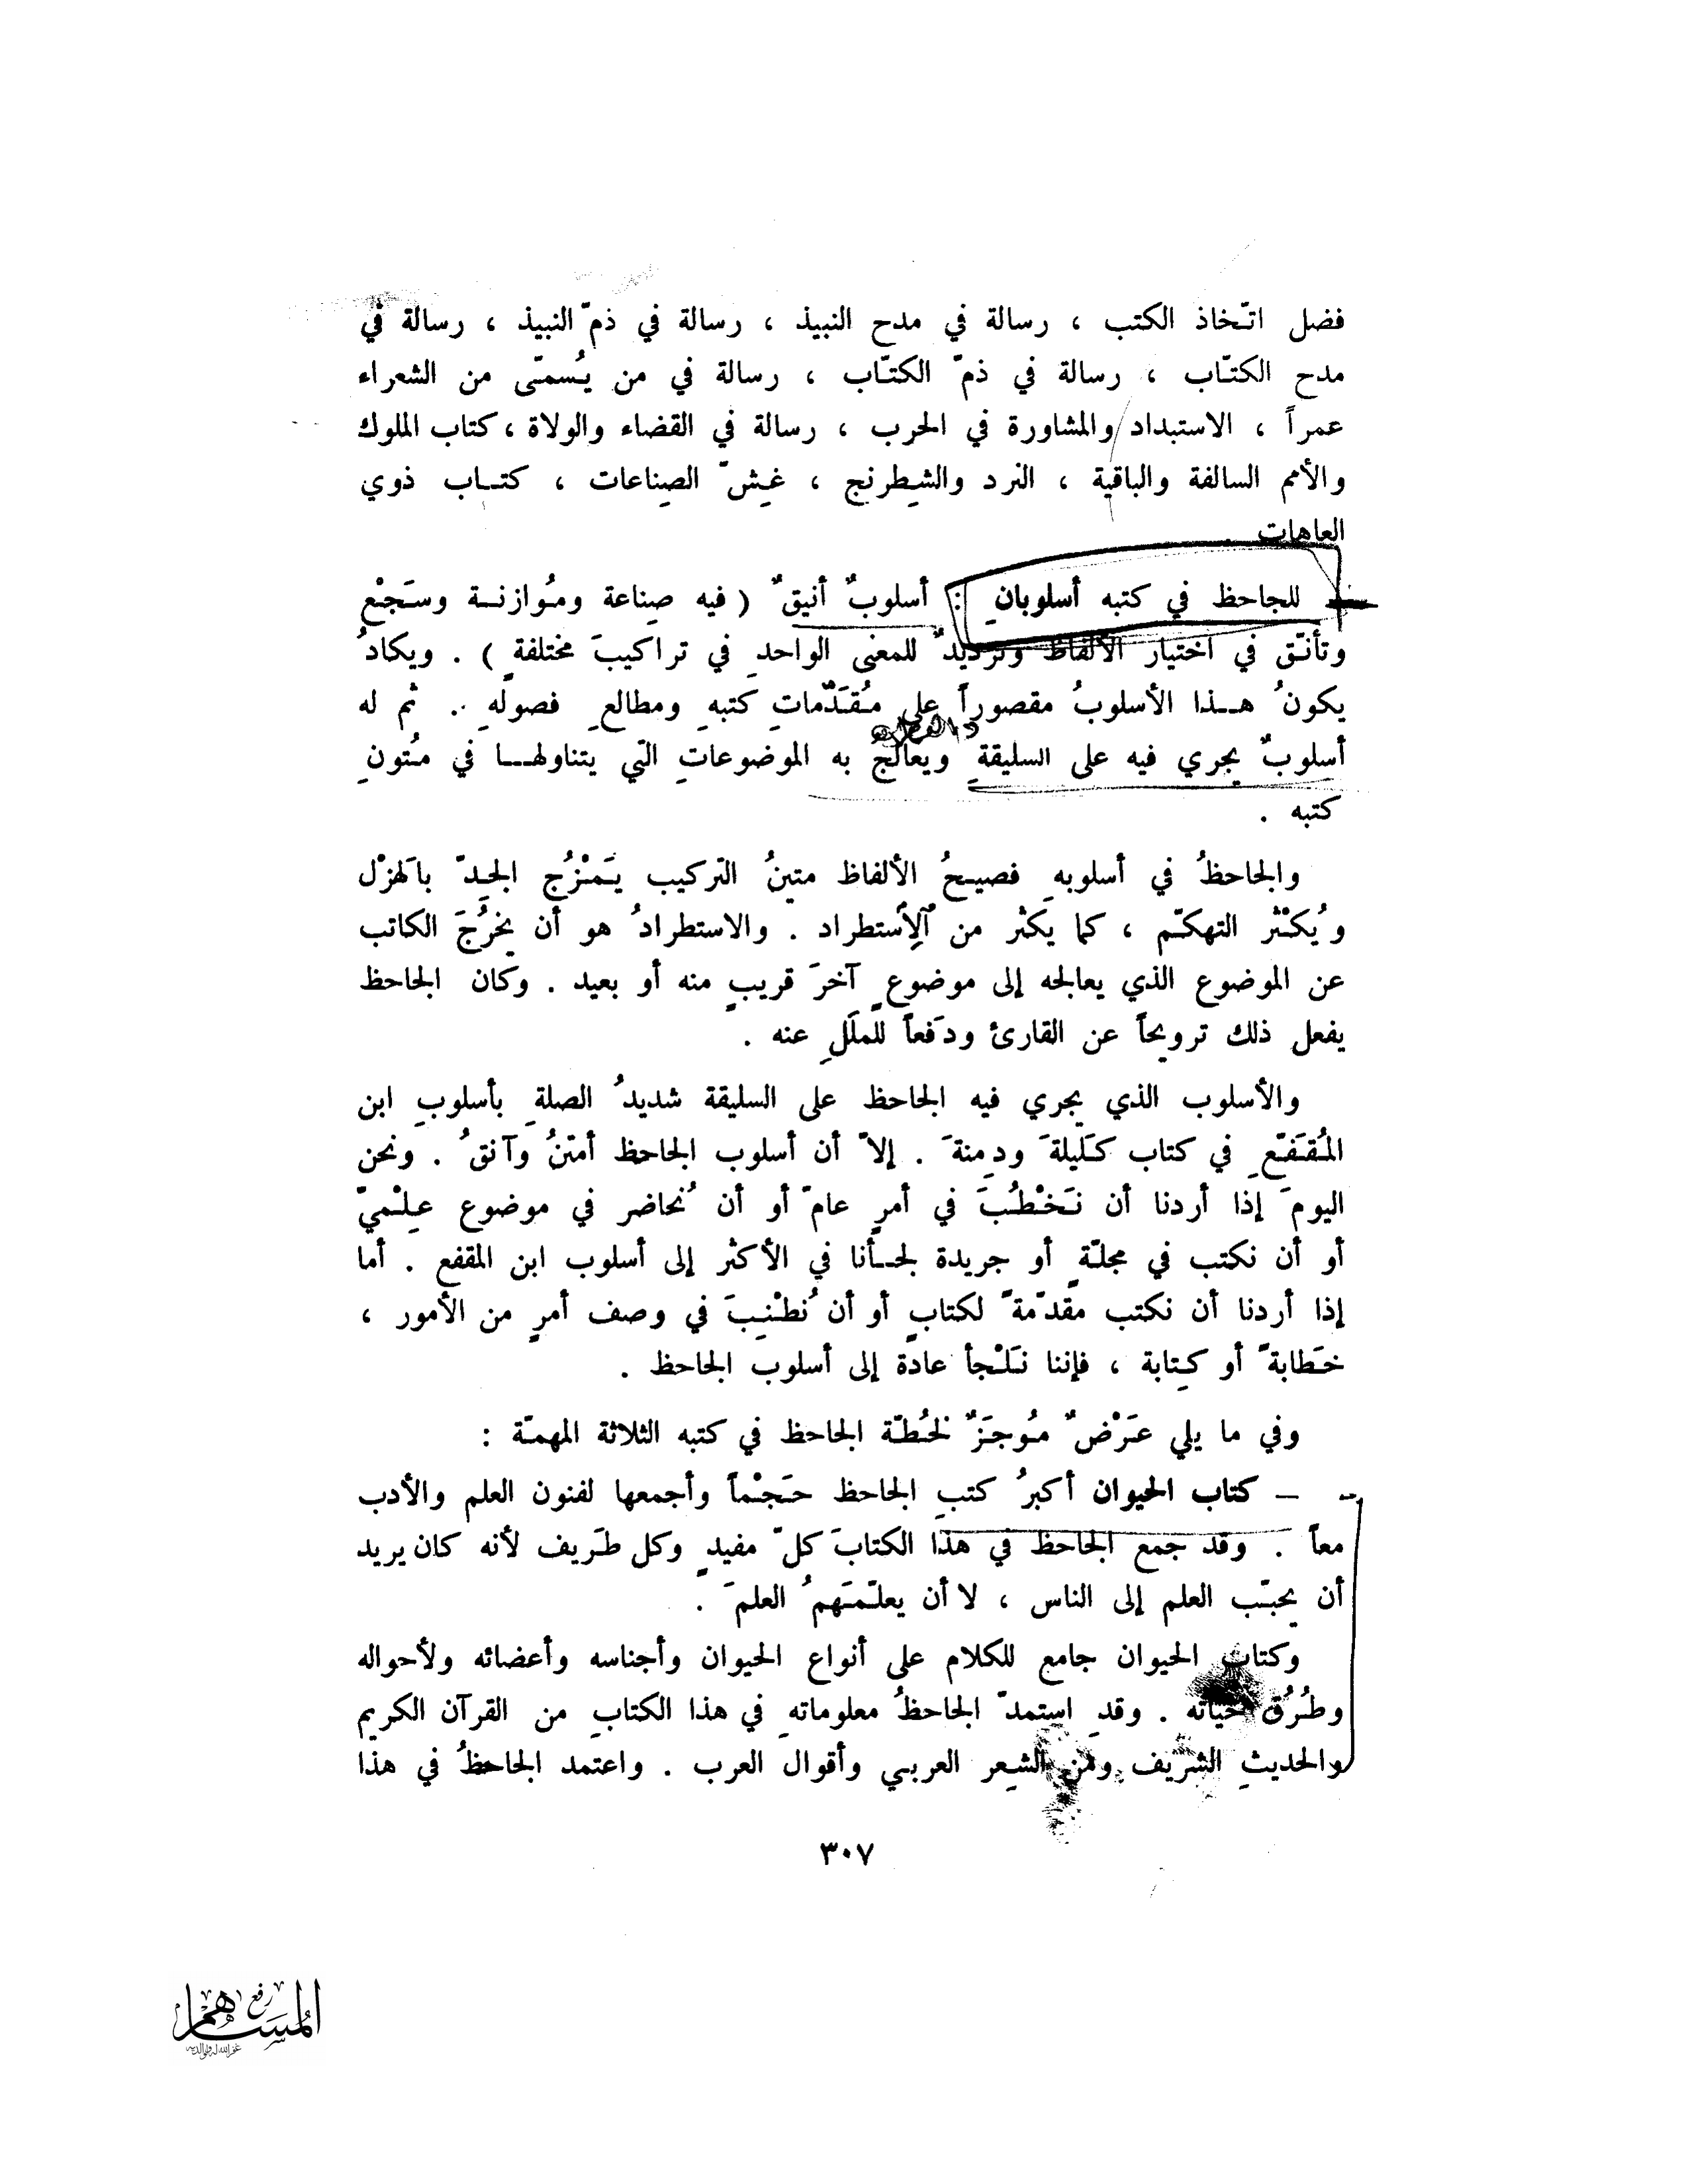 فضل اتّخاذ الكتب ، رسالة في مدح النبيذ ، رسالة في ذمّ النبيذ ، رسالة في
مدح الكتّاب ، رسالة في ذمّ الكتّاب ، رسالة في من يُسمّى من الشعراء
عمراً ، الاستبداد والمشاورة في الحرب ، رسالة في القضاء والولاة ، كتاب الملوك
والأمم السالفة والباقية ، النرد والشِطرنج ، غِشّ الصِناعات ، كتــاب ذوي
العاهات
للجاحظ في كتبه أسلوبانِ : أسلوبٌ أنيقٌ ( فيه صِناعة ومُوازنــة وسَجْع
وتأنّق في اختيار الألفاظ وترديدٌ للمعنى الواحدِ في تراكيبَ مختلفةٍ ) . ويكادُ
يكونُ هــذا الأسلوبُ مقصوراً على مُقَدّماتِ كتبهِ ومطالعِ فصولهِ . ثم له
أسلوبٌ يجري فيه على السليقةِ ويعالجُ به الموضوعاتِ التي يتناولهــا في مُتونِ
كتبه .
والجاحظُ في أسلوبهِ فصيحُ الألفاظ متينُ التركيب يَمْزُج الجِدّ بالَهزْل
ويُكثر التهكّم ، كما يكثر من ٱلِاستطراد . والاستطرادُ هو أن يخرُجَ الكاتب
عن الموضوع الذي يعالجه إلى موضوعٍ آخرَ قريبٍ منه أو بعيد . وكان الجاحظ
يفعل ذلك ترويحاً عن القارئ ودَفعاً للملَلِ عنه .
والأسلوب الذي يجري فيه الجاحظ على السليقة شديدُ الصلةِ بأسلوبِ ابن
المُقَفّعِ في كتاب كَليلةَ ودِمنةَ . إلاّ أن أسلوب الجاحظ أمتنُ وآنقُ . ونحن
اليومَ إذا أردنا أن نَخْطُبَ في أمرٍ عامّ أو أن نُحاضر في موضوع عِلْميّ
أو أن نكتب في مجلّةٍ أو جريدة لجــأنا في الأكثر إلى أسلوب ابن المقفع . أما
إذا أردنا أن نكتب مقدّمةً لكتابٍ أو أن نُطْنِبَ في وصف أمرٍ من الأمور ،
خَطابةً أو كِتابة ، فإننا نَلْجأ عادة إلى أسلوب الجاحظ .
وفي ما يلي عَرْضٌ مُوجَزٌ لخُطّة الجاحظ في كتبه الثلاثة المهمّة :
– كتاب الحيوان أكبرُ كتبِ الجاحظ حَجْماً وأجمعها لفنون العلم والأدب
معاً . وقد جمع الجاحظ في هذا الكتابَ كلّ مفيدٍ وكل طَريف لأنه كان يريد
أن يحبّب العلم إلى الناس ، لا أن يعلّمَهمُ العلمَ .
وكتاب الحيوان جامع للكلام على أنواع الحيوان وأجناسه وأعضائه ولأحواله
وطُرُق حياته . وقدِ استمدّ الجاحظُ معلوماتهِ في هذا الكتابِ من القرآن الكريم
والحديثِ الشريف ومن الشِعر العربي وأقوال العرب . واعتمد الجاحظُ في هذا
٣٠٧
رفع
المساهم
غفر الله له ولوالديه